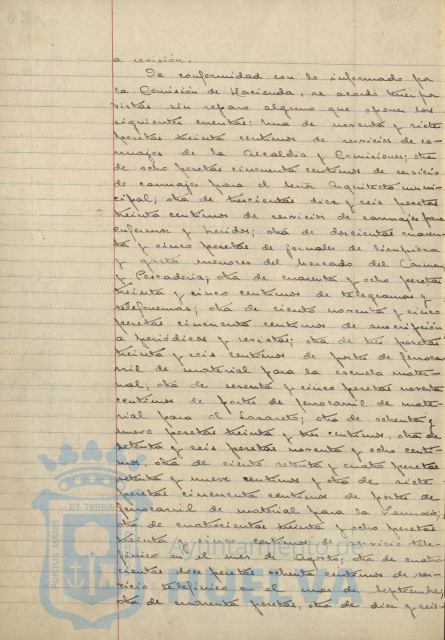 a revisión.
De conformidad con lo informado por
la Comisión de Hacienda, se acordó tener por
vistas sin reparo alguno que oponer las
siguientes cuentas: Una de noventa y siete
pesetas treinta centimos de servicios de ca-
rruajes de la Alcaldía y Comisiones; otra
de ocho pesetas cincuenta centimos de servicio
de carruajes para el señor Arquitecto muni-
cipal; otra de trescientas diez y seis pesetas
treinta centimos de servicios de carruajes para
enfermos y heridos; otra de doscientas cuaren-
ta y cinco pesetas de jornales de limpieza
y gastos menores del Mercado del Carmen
y Pescadería; otra de cuarenta y ocho pesetas
treinta y cinco centimos de telegramas y
telefonemas; otra de ciento noventa y cinco
pesetas cincuenta centimos de suscripción
a periódicos y revistas; otra de tres pesetas
treinta y seis centimos de porte de ferroca-
rril de material para la escuela mater-
nal; otra de sesenta y cinco pesetas noventa
centimos de portes de ferrocarril de mate-
rial para el Lazareto; otra de ochenta y
nueve pesetas treinta y tres centimos, otra de
setenta y seis pesetas noventa y ocho centi-
mos, otra de ciento setenta y cuatro pesetas
setenta y nueve centimos y otra de siete
pesetas cincuenta centimos de portes de
ferrocarril de material para la
otra de cuatrocientas treinta y ocho pesetas
treinta y cinco centimos de servicio tele-
fónico en el mes de Agosto; otra de cuatro-
cientas doce pesetas ochenta centimos de ser-
vicio telefónico en el mes de Septiembre;
otra de cuarenta pesetas, otra de diez y seis
PORTUS MARIS ET TERRAE
Ayuntamiento de
HUELVA